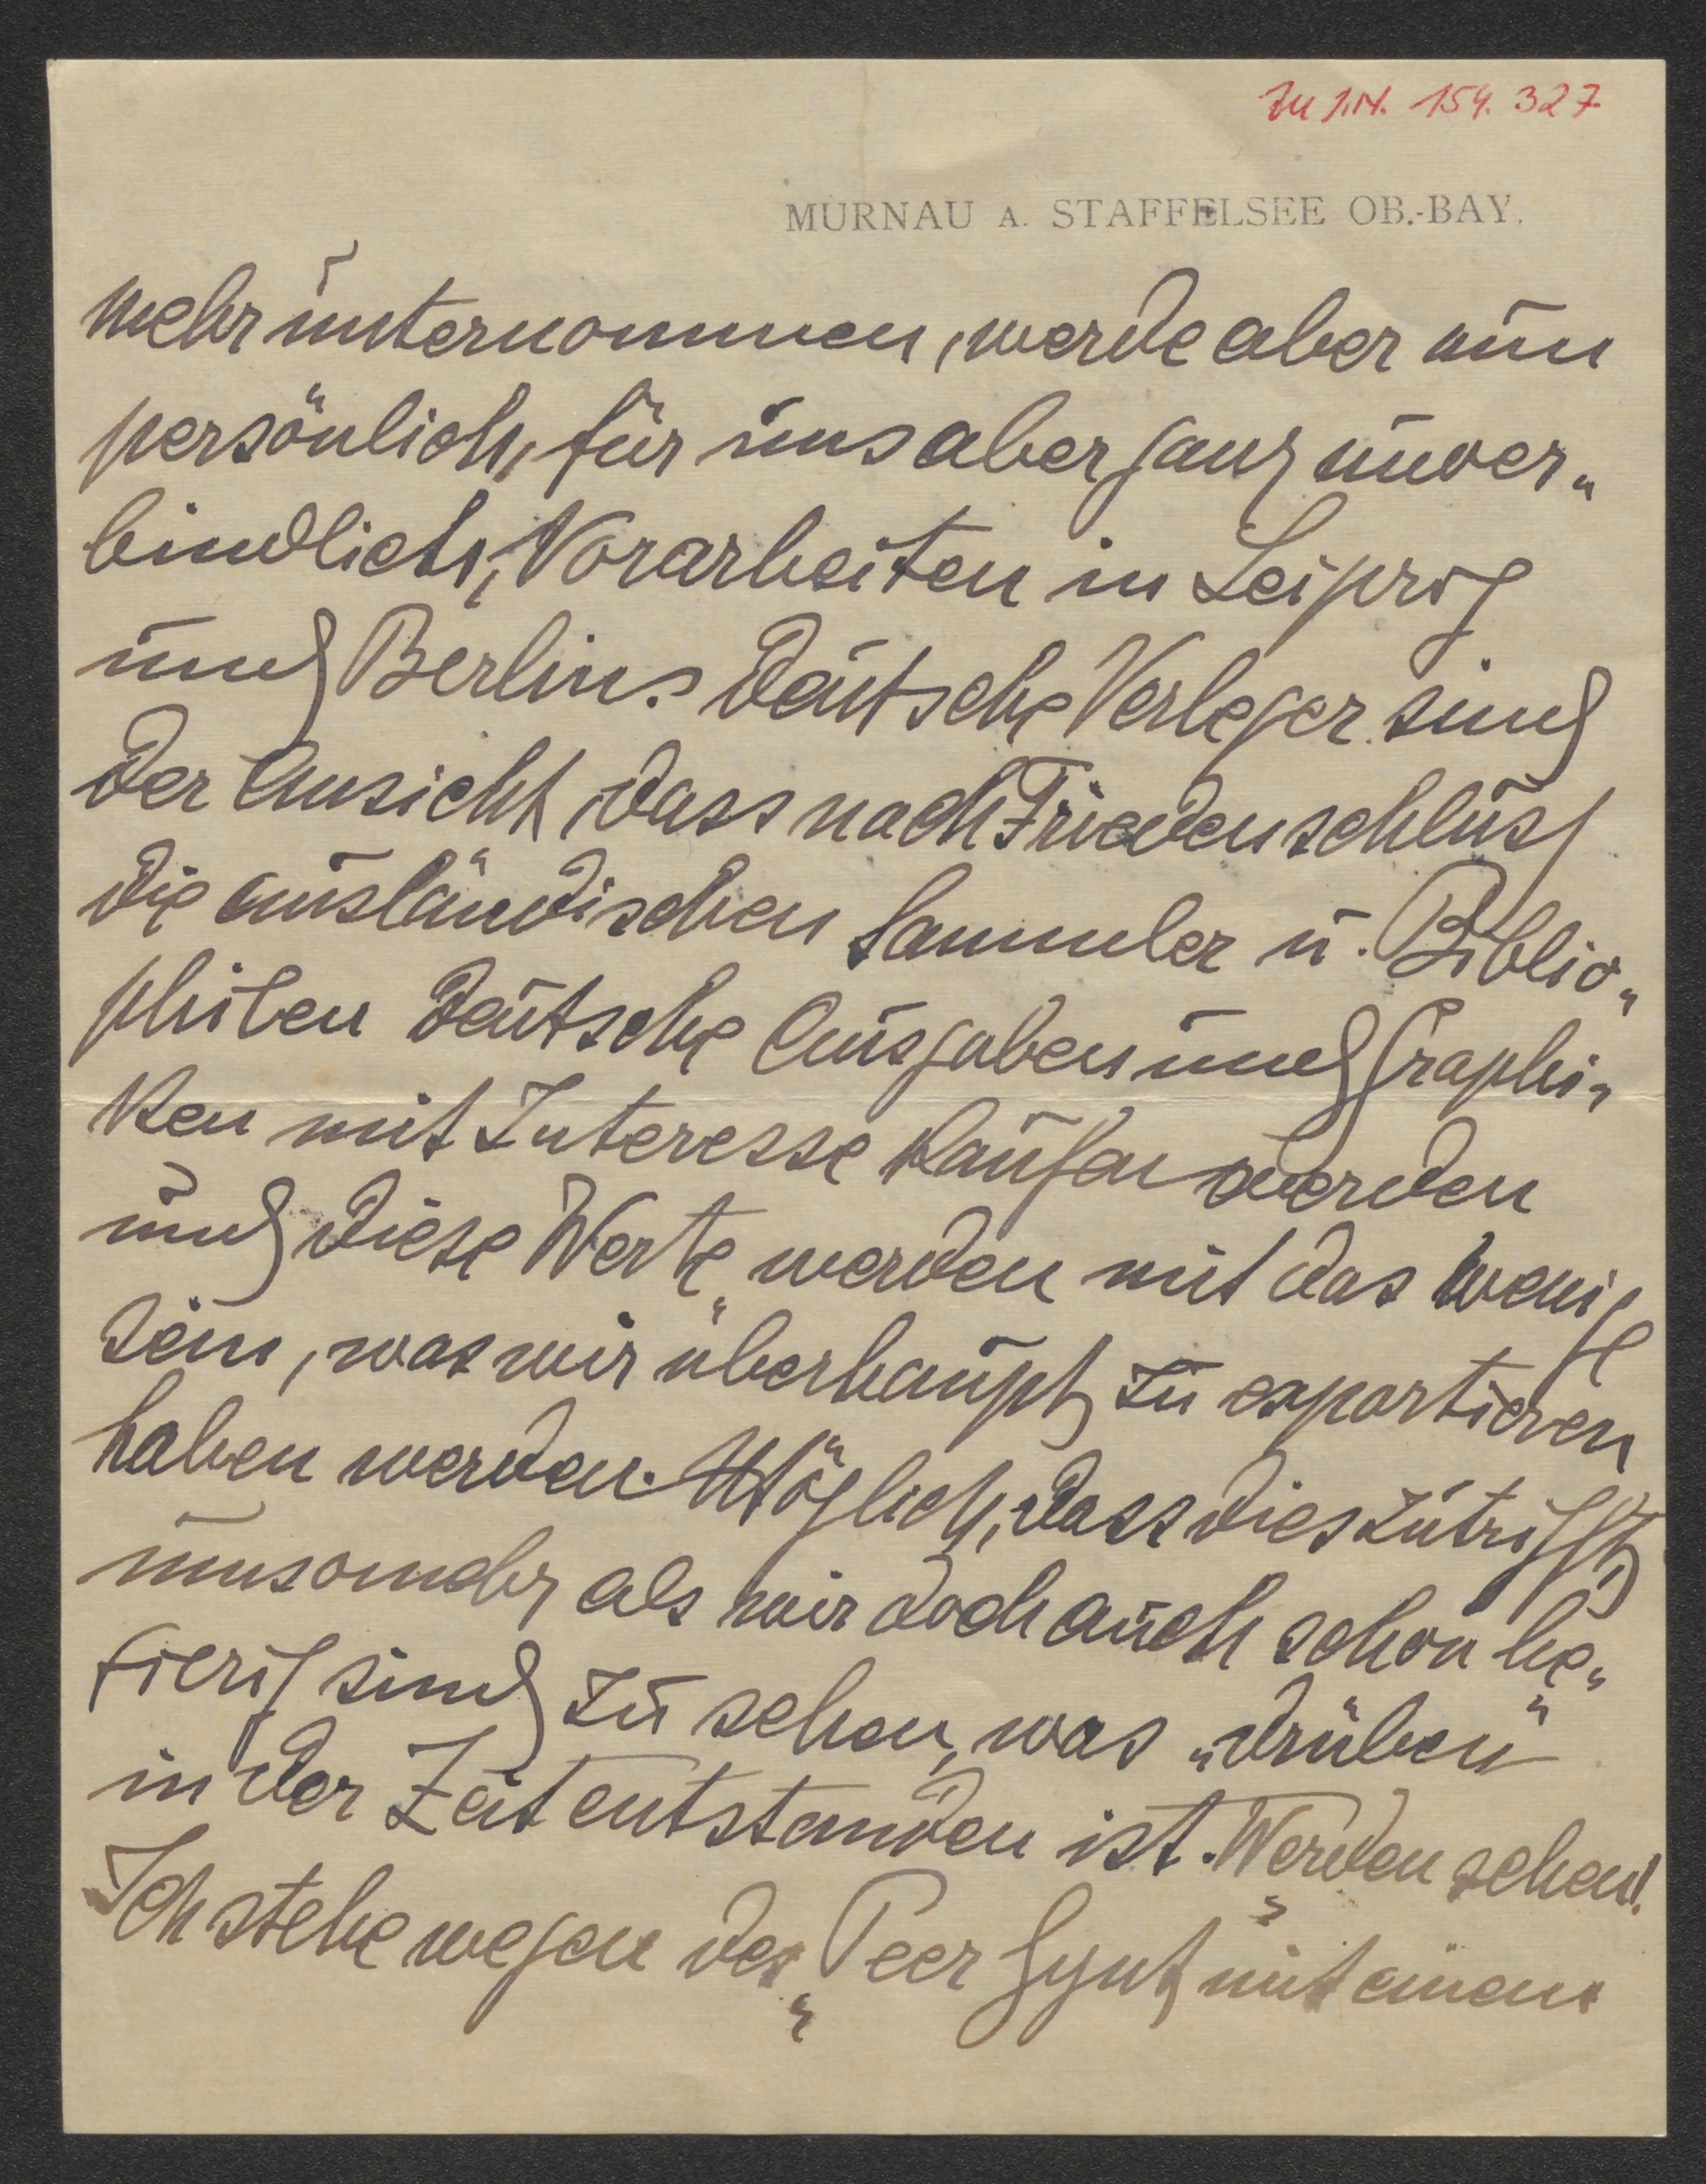 Zu I.N. 154.327
MURNAU A. STAFFELSEE OB.-BAY.
mehr unternommen, werde aber nun
persönlich, für uns aber ganz unver„
bindlich, Vorarbeiten in Leipzig
und Berlin. Deutsche Verleger sind
der Ansicht, dass nach Friedenschluss
die ausländischen Sammler u. Biblio„
philen deutsche Ausgaben und Graphi„
ken mit Interesse kaufen werden
und diese Werte werden mit das wenige
sein, was wir überhaupt zu exportieren
haben werden. Möglich, dass dies zutrifft,
umsomehr als wir doch auch schon be„
gierig sind zu sehen, was „drüben“
in der Zeit entstanden ist. Werden sehen!
Ich stehe wegen des „Peer Gynt“ mit einem